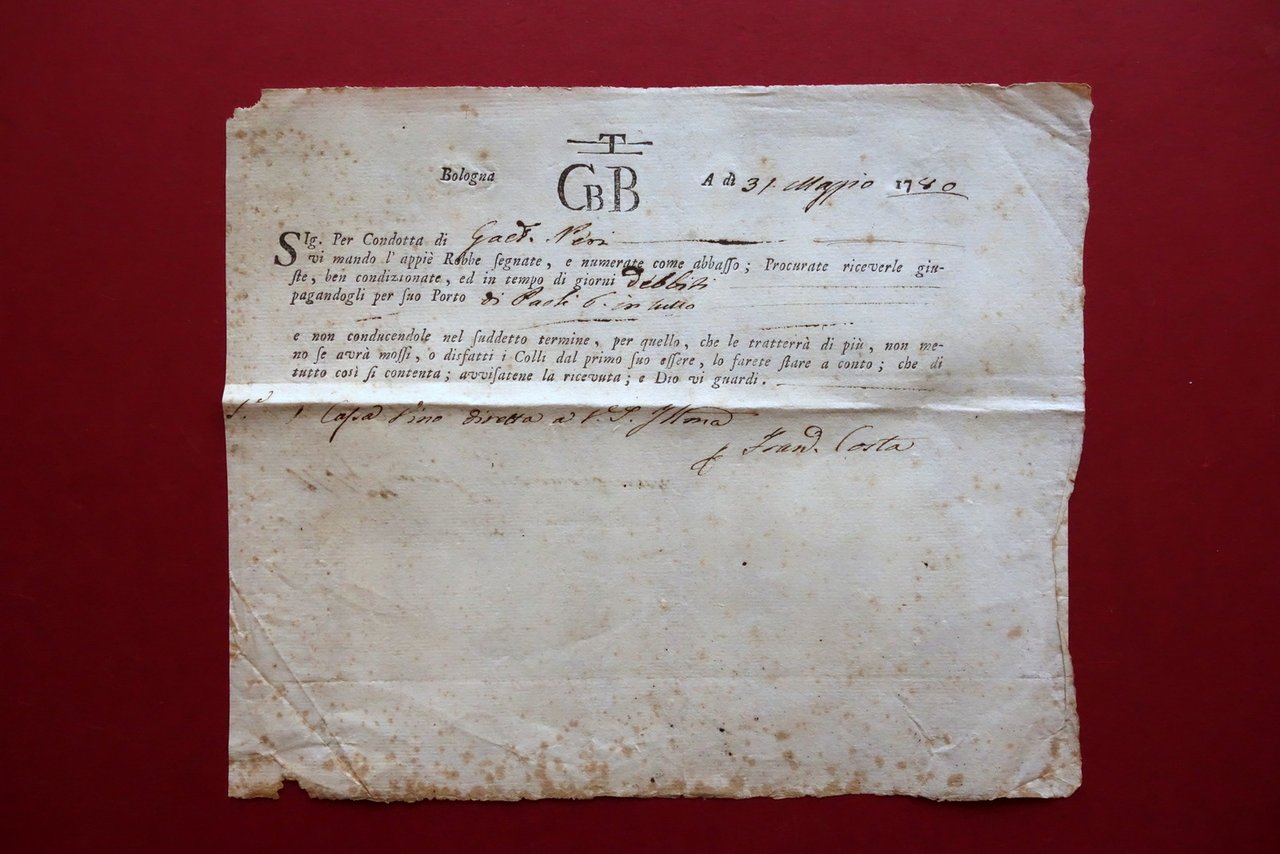 T
Bologna CBB A dì 31. Maggio 1780
SIg. Per Condotta di Gaet. Neri
vi mando l'appiè Robbe ſegnate, e numerate come abbaſſo; Procurate riceverle giu-
ſte, ben condizionate, ed in tempo di giorni debbiti
pagandogli per ſuo Porto di Paoli 6. in tutto
e non conducendole nel ſuddetto termine, per quello, che le tratterrà di più, non me-
no ſe avrà moſſi, o disfatti i Colli dal primo ſuo eſſere, lo farete ſtare a conto; che di
tutto così ſi contenta; avviſatene la ricevuta; e Dio vi guardi.
1 Caſsa Vino diretta a V. S. Ill̃ma
Costa